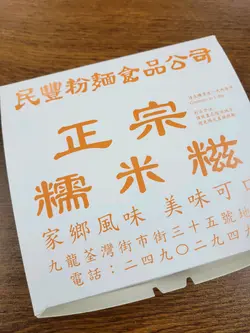 民豐粉麵食品公司
正宗
糯米糍
家鄉風味 美味可口
九龍荃灣街市街三十五號地
電話:二四九〇二九四九